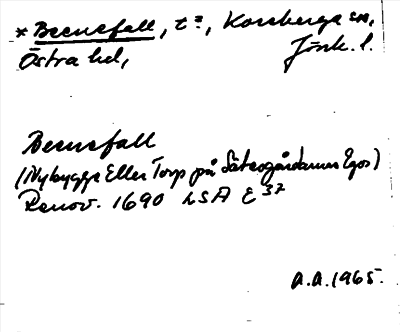 * Beenefall, t?, Korsberga sn,
Östra hd, Jönk. l.
Beenefall
(Nybygge Eller Torp på Säterogårdarnes Egor)
Renov. 1690 LSA E 37
A.A. 1965.